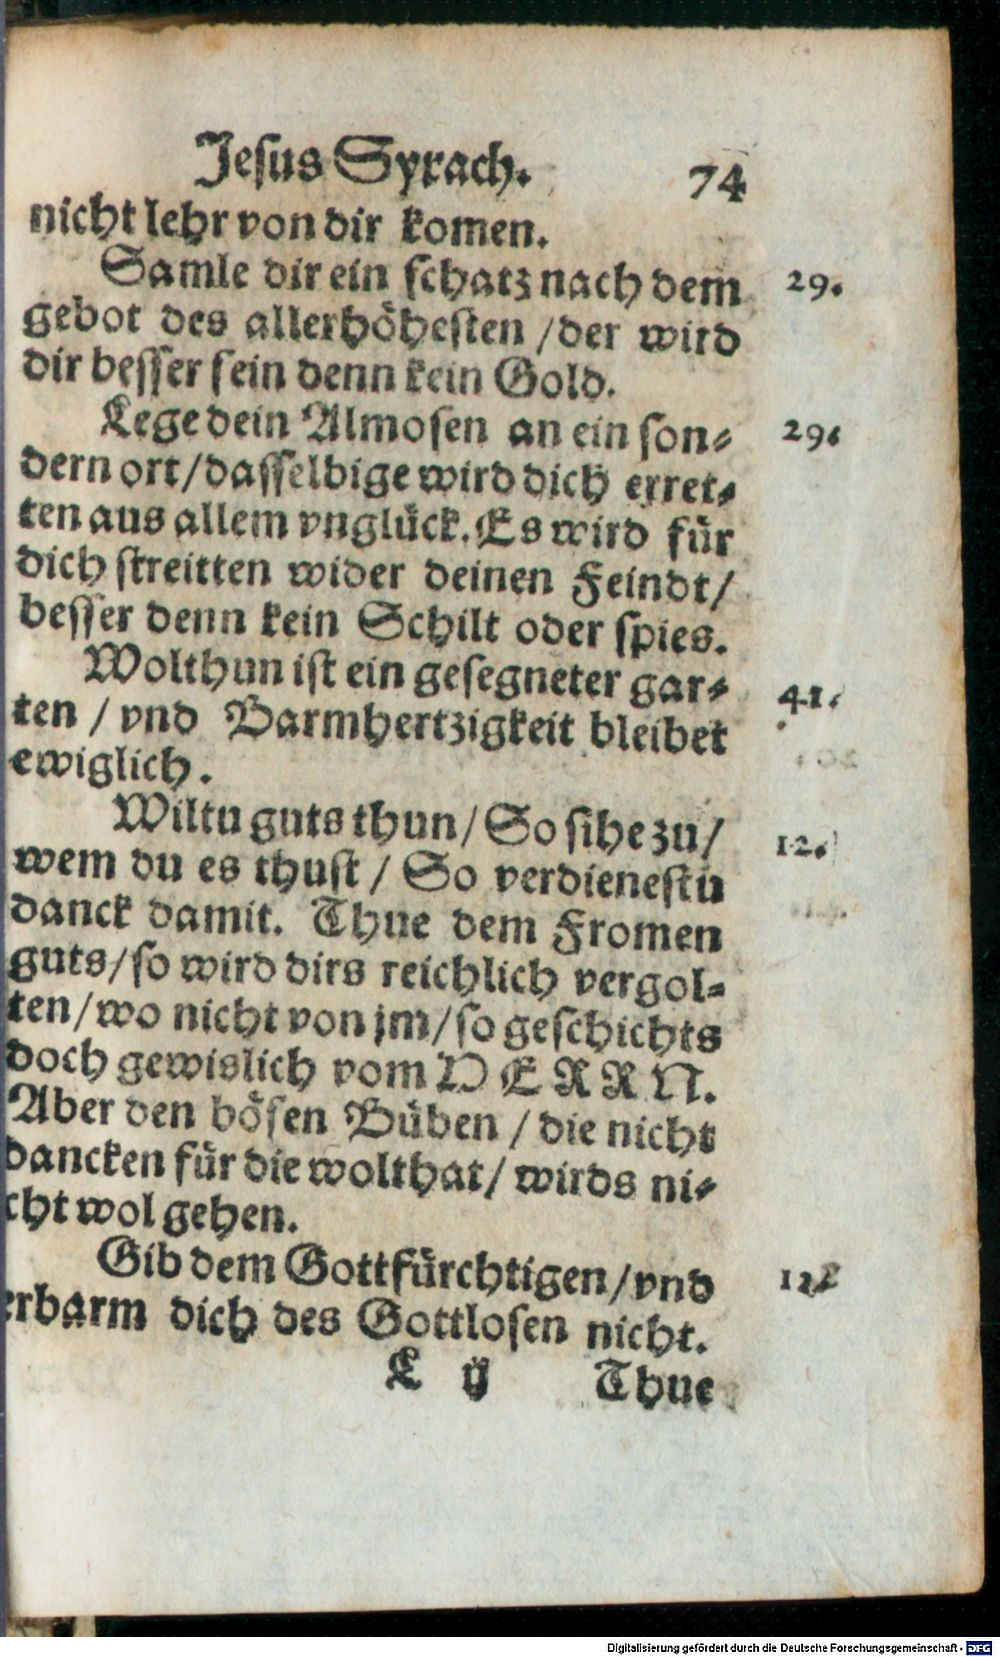 Jesus Syrach. 74
nicht lehr von dir komen.
Samle dir ein schatz nach dem 29.
gebot des allerhöhesten / der wird
dir besser sein denn kein Gold.
Lege dein Almosen an ein son⸗ 29.
dern ort / dasselbige wird dich erret⸗
ten aus allem vnglück. Es wird für
dich streitten wider deinen Feindt /
besser denn kein Schilt oder spies.
Wolthun ist ein gesegneter gar⸗ 41.
ten / vnd Barmhertzigkeit bleibet
ewiglich.
Wiltu guts thun / So sihe zu / 12.
wem du es thust / So verdienestu
danck damit. Thue dem Fromen
guts / so wird dirs reichlich vergol⸗
ten / wo nicht von jm / so geschichts
doch gewislich vom HERRN.
Aber den bösen Büben / die nicht
dancken für die wolthat / wirds ni⸗
cht wol gehen.
Gib dem Gottfürchtigen / vnd 12.
erbarm dich des Gottlosen nicht.
L ij Thue
Digitalisierung gefördert durch die Deutsche Forschungsgemeinschaft - DFG